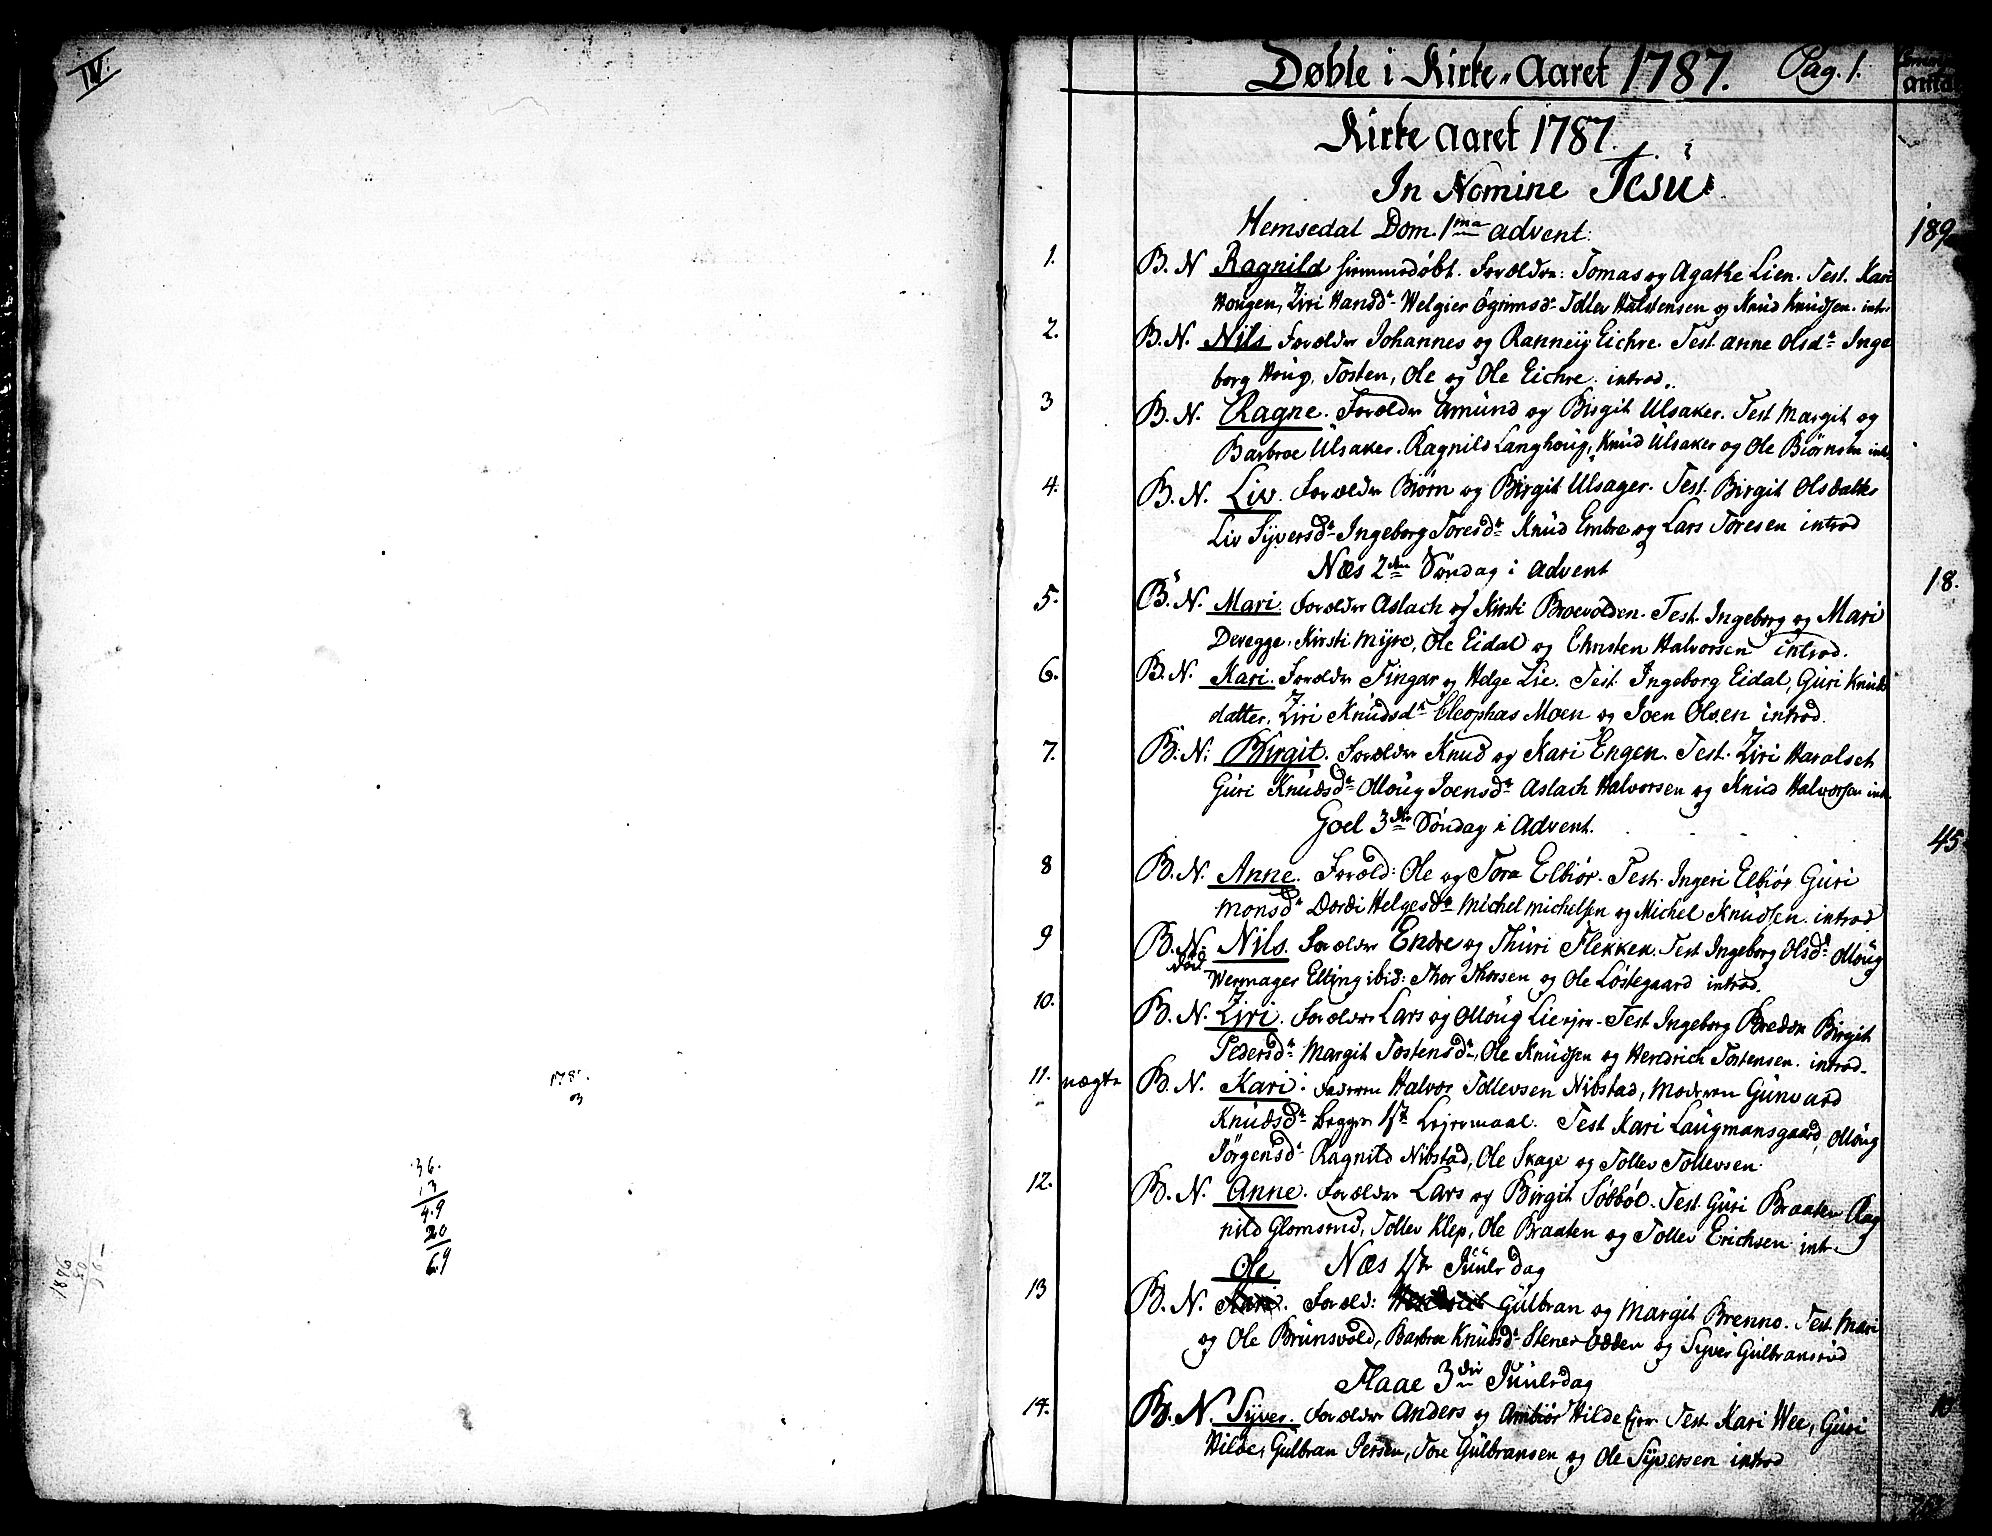 IV.
178
3
36.
13
49
20
69
1876
Døbte i Kirke-Aaret 1787. Pag. 1.
Kirke aaret 1787.
In Nomine Jesu.
Hemsedal Dom. 1ma advent. 189
1. B. N. Ragnild hiemmedøbt. Forældre: Tomas og Agathe Lien. Test. Kari
Hougen, Ziri Hansd. Welgier Ogrimsd. Tollev Halstensen og Knud Knudsen. intr.
2. B. N. Nils Forældre Johannes og Ranneij Eichre. Test anne Olsd. Inge
borg Houg, Tosten, Ole og Ole Eichre. introd.
3 B. N. Ragne. Forældre Amund og Birgit Ulsaker. Test Margit og
Barbroe Ulsaker. Ragnild Langhoug, Knud Ulsaker og Ole Biørnsen int.
4. B. N. Liv. Forældre Biørn og Birgit Ulsager. Test. Birgit Olsdatter
Liv Syversd. Ingeborg Toresd. Knud Embre og Lars Toresen introd
Næs 2den Søndag i advent 18.
5. B. N. Mari. Forældre Aslach og Kirsti Broevolden. Test. Ingeborg og Mari
Deregge. Kirsti Myre, Ole Eidal og Christen Halvorsen introd.
6. B. N. Kari. Forældre Fingar og Helge Lie. Test. Ingeborg Eidal, Guri Knuds
datter, Ziri Knudsd. Cleophas Moen og Joen Olsen introd.
7. B. N. Birgit. Forældre Knud og Kari Engen. Test. Ziri Haralset
Guri Knudsd. Moug Joensd. Aslach Halvorsen og Knud Halvorsen int.
Goel 3die Søndag i Advent. 45
8 B. N. Anne. Foræld: Ole og Tora Elbiør. Test. Ingeri Elbiør Guri
Monsd. Dordi Helgesd. Michel Michelsen og Michel Knudsen. introd
9 B. N. Nils. Forældre Endre og Thuri Flekken. Test Ingeborg Olsd. Moug
død Wermager Elling ibid: Thor Thorsen og Ole Løstegaard introd.
10. B. N. Ziri. Forældre Lars og Moug Lie Test Ingeborg Bredden Birgit
Pedersd. Margit Tostensd. Ole Knudsen og Hendrich Tostensen. introd.
11. uægte B. N. Kari. Faderen Halvor Tollevsen Nibstad, Moderen Gunvord
Knudsd. begges 1ste Lejermaal. Test Kari Laugmansgaard, Moug
Jørgensd. Ragnild Nibstad, Ole Skage og Tollev Tollevsen.
12. B. N. Anne. Forældre Lars og Birgit Søbøl. Test. Guri Braaten Rag
nild Glomsrud, Tollev Klep, Ole Braaten og Tollev Erichsen int.
Ole Næs 1ste Juule dag
13 B. N. Kari. Foræld: Gulbran og Margit Brenno. Test. Mari
og Ole Brunsvold, Barbroe Knudsd. Stener Odden og Syver Gulbransrud
Flaae 3die Juuledag
14. B. N. Syver. Forældre Anders og Ambiør Hilde Test Kari Wee, Guri
Hilde, Gulbran Iersen, Tore Gulbransen og Ole Syversen introd